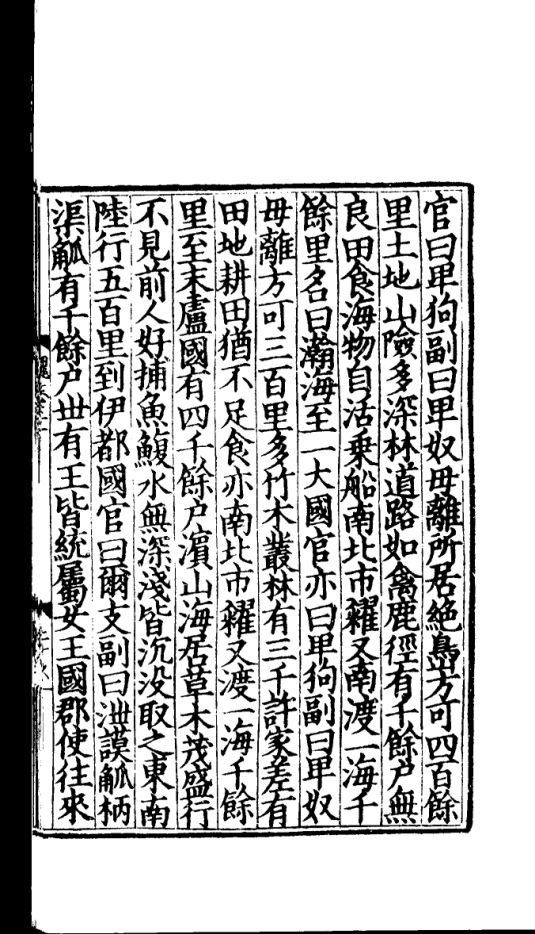 官曰卑狗副曰卑奴毋離所居絶㠀方可四百餘
里土地山險多深林道路如禽鹿徑有千餘户無
良田食海物自活乗船南北市糴又南渡一海千
餘里名曰瀚海至一大國官亦曰卑狗副曰卑奴
毋離方可三百里多竹木叢林有三千許家差有
田地耕田猶不足食亦南北市糴又渡一海千餘
里至末盧國有四千餘户濵山海居草木茂盛行
不見前人好捕魚鰒水無深淺皆沉没取之東南
陸行五百里到伊都國官曰爾支副曰泄謨觚柄
渠觚有千餘户丗有王皆統屬女王國郡使往來